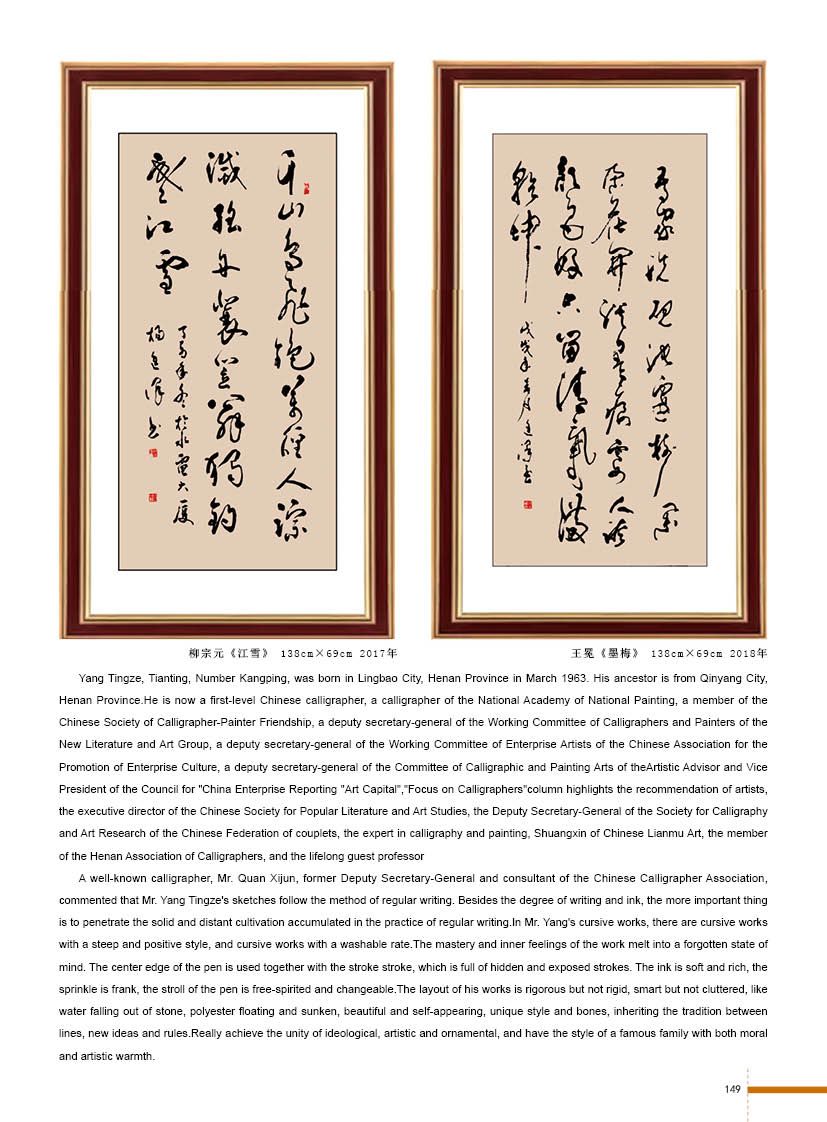 千山鳥飛絕萬徑人踪
滅孤舟蓑笠翁獨釣
寒江雪
丁酉年冬於水電大廈
楊廷澤書
吾家洗硯池邊樹朵
朵花開淡墨痕不要人誇
顏色好只留清氣滿
乾坤
戊戌年春月廷澤書
柳宗元《江雪》 138cm×69cm 2017年
王冕《墨梅》 138cm×69cm 2018年
Yang Tingze, Tianting, Number Kangping, was born in Lingbao City, Henan Province in March 1963. His ancestor is from Qinyang City,
Henan Province.He is now a first-level Chinese calligrapher, a calligrapher of the National Academy of National Painting, a member of the
Chinese Society of Calligrapher-Painter Friendship, a deputy secretary-general of the Working Committee of Calligraphers and Painters of the
New Literature and Art Group, a deputy secretary-general of the Working Committee of Enterprise Artists of the Chinese Association for the
Promotion of Enterprise Culture, a deputy secretary-general of the Committee of Calligraphic and Painting Arts of theArtistic Advisor and Vice
President of the Council for "China Enterprise Reporting "Art Capital","Focus on Calligraphers"column highlights the recommendation of artists,
the executive director of the Chinese Society for Popular Literature and Art Studies, the Deputy Secretary-General of the Society for Calligraphy
and Art Research of the Chinese Federation of couplets, the expert in calligraphy and painting, Shuangxin of Chinese Lianmu Art, the member
of the Henan Association of Calligraphers, and the lifelong guest professor
A well-known calligrapher, Mr. Quan Xijun, former Deputy Secretary-General and consultant of the Chinese Calligrapher Association,
commented that Mr. Yang Tingze's sketches follow the method of regular writing. Besides the degree of writing and ink, the more important thing
is to penetrate the solid and distant cultivation accumulated in the practice of regular writing.In Mr. Yang's cursive works, there are cursive works
with a steep and positive style, and cursive works with a washable rate.The mastery and inner feelings of the work melt into a forgotten state of
mind. The center edge of the pen is used together with the stroke stroke, which is full of hidden and exposed strokes. The ink is soft and rich, the
sprinkle is frank, the stroll of the pen is free-spirited and changeable.The layout of his works is rigorous but not rigid, smart but not cluttered, like
water falling out of stone, polyester floating and sunken, beautiful and self-appearing, unique style and bones, inheriting the tradition between
lines, new ideas and rules.Really achieve the unity of ideological, artistic and ornamental, and have the style of a famous family with both moral
and artistic warmth.
149